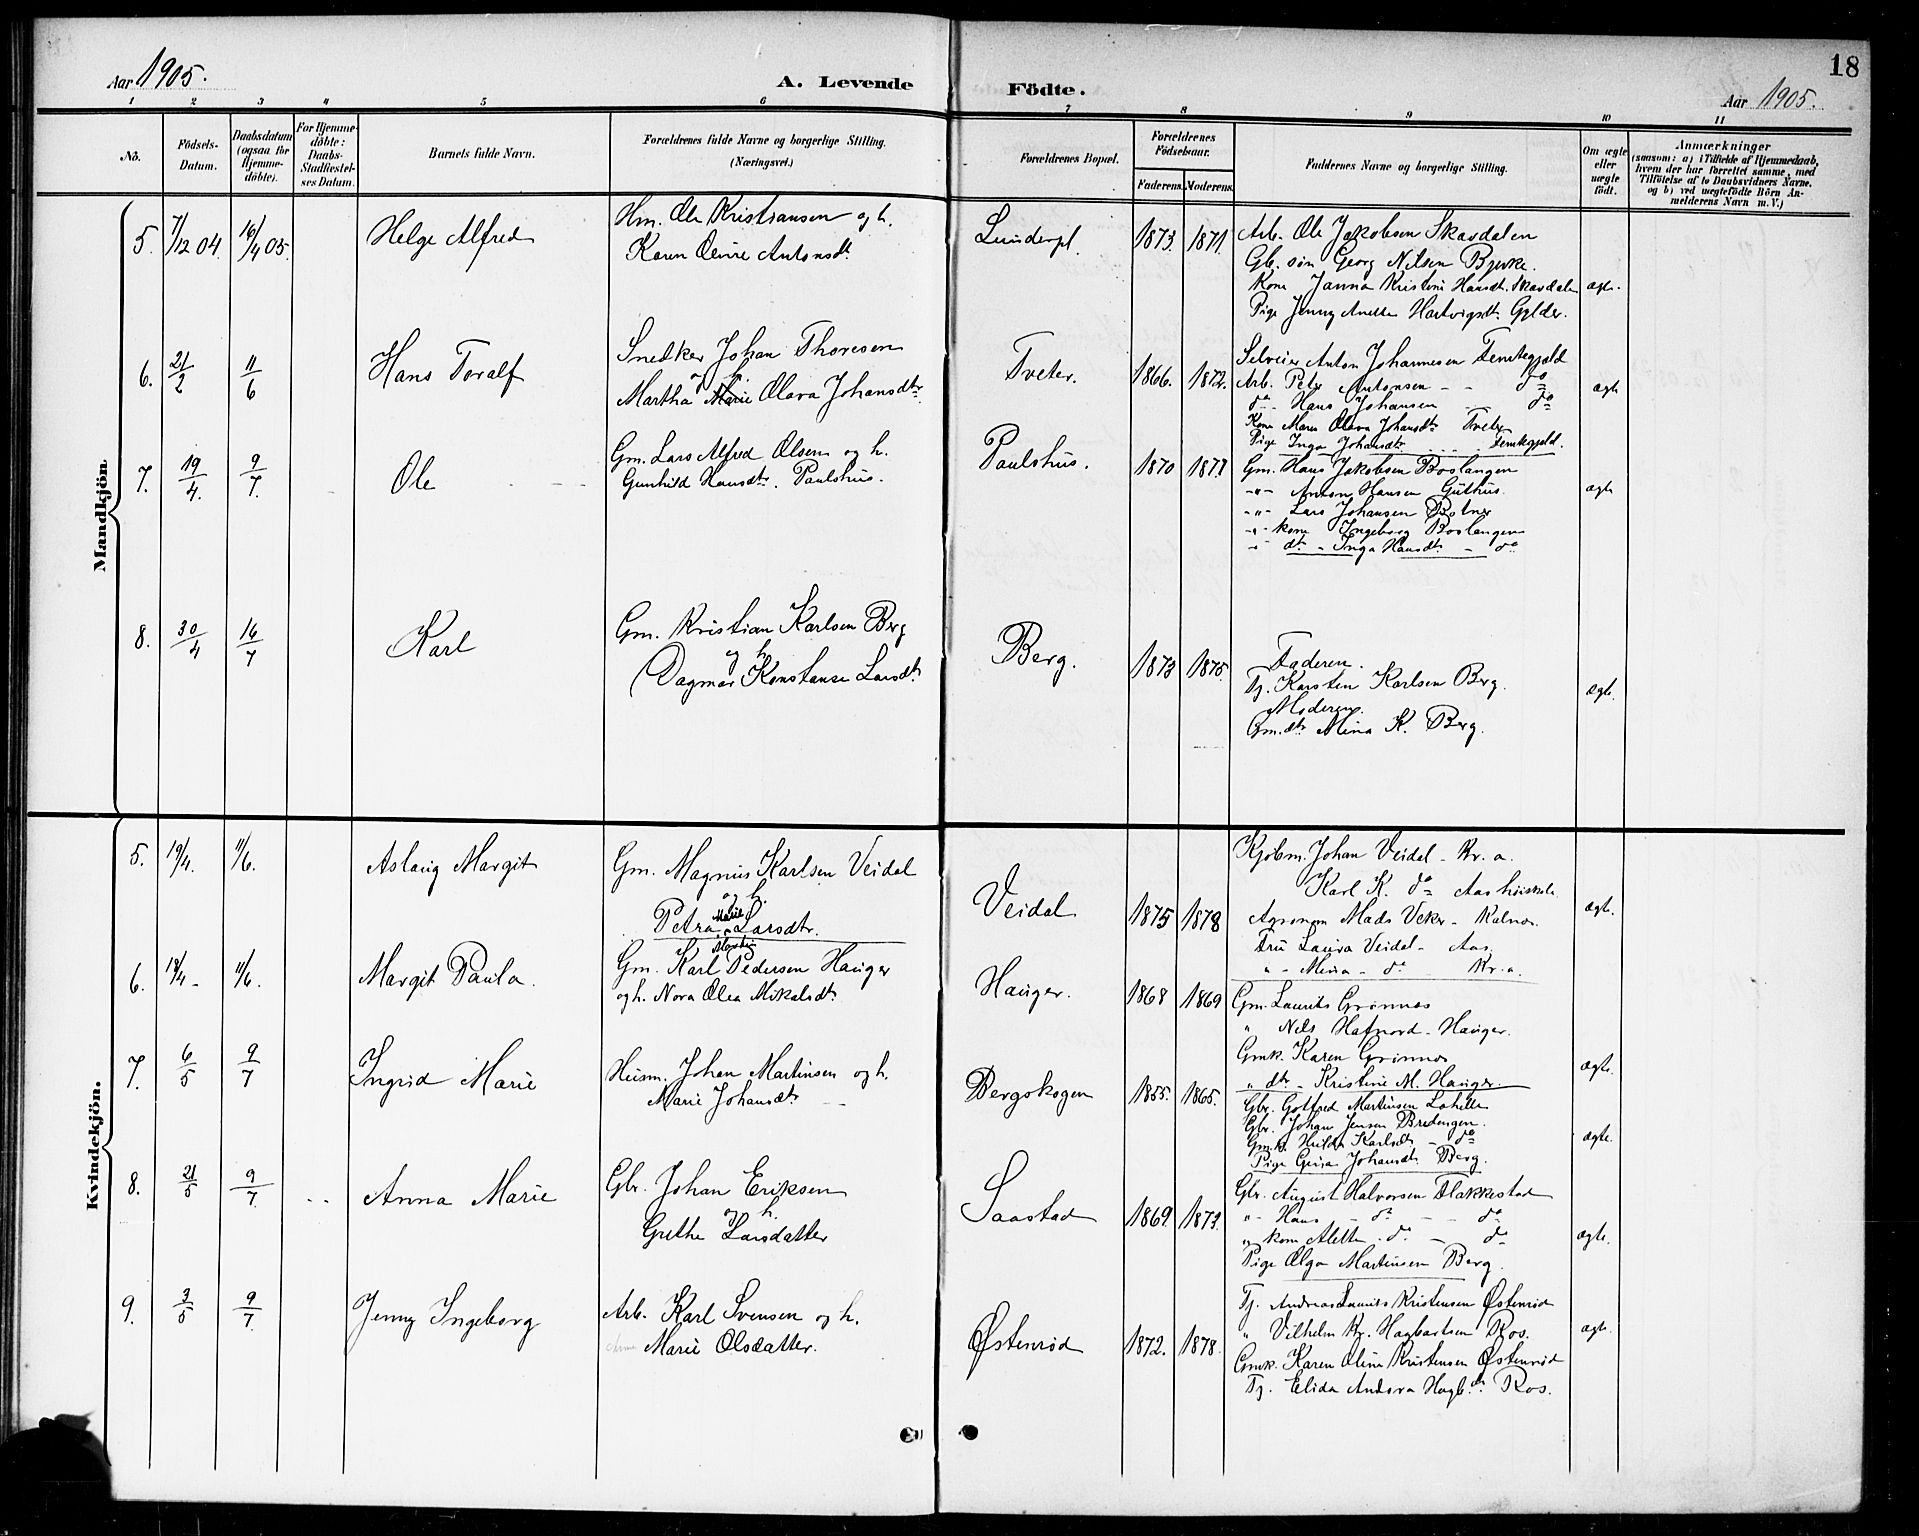 Aar 1905.
A. Levende
Födte.
18
Aar 1905.
1 2 3 4 5 6 7 8 9 10 11
No.
Födsels-
Datum.
Daabsdatum
(ogsaa for
Hjemme-
döbte).
For Hjemme-
döbte:
Daabs-
Stadfæstel-
ses Datum.
Barnets fulde Navn.
Forældrenes fulde Navne og borgerlige Stilling.
(Næringsvei.)
Forældrenes Bopæl.
Forældrenes
Födselsaar.
Faderens. Moderens.
Faddernes Navne og borgerlige Stilling.
Om ægte
eller
uægte
födt.
Anmærkninger
(saasom: a) i Tilfælde af Hjemmedaab,
hvem der har forrettet samme, med
Tilföielse af to Daabsvidners Navne,
og b) ved uægtefödte Börn An-
melderens Navn m. V.)
Mandkjön
5. 7/12 04. 16/4 05. Helge Alfred
Hm. Ole Kristiansen og h.
Karen Olivie Antonsdt.
Lunderpl. 1873. 1871.
Arb. Ole Jakobsen Skavdalen
Gb. søn Georg Nilsen Bjerke.
Kone Janna Kristine Hansdt. Skavdalen ægte.
Pige Jenny Anette Hartvigsdt. Gylder.
6. 21/2 11/6 Hans Toralf
Snedker Johan Thoresen
og h.
Martha Marie Olava Johansdtr.
Tveter. 1866. 1872.
Selveier Anton Johannesen Temtegjeld
Arb. Petr Antonsen - - do
do - Hans Johansen - do ægte
Kone Maren Olava Johansdtr Tveter
Pige Inga Johansdtr. Temtegjeld.
7. 19/4. 9/7. Ole
Gm. Lars Alfred Olsen og h.
Gunhild Hansdtr. Paulshus.
Paulshus. 1870 1878
Gm. Hans Jakobsen Boslangen
-"- Anton Hansen Guthus.
-"- Lars Johansen Botner ægte
-"- kone Ingeborg Boslangen
-"- dtr - Inga Hansdtr. - do
8. 30/4 16/7 Karl
Gm. Kristian Karlsen Berg
og h.
Dagmar Konstanse Larsdtr.
Berg. 1873 1875.
Faderen.
Tj. Karsten Karlsen Berg.
Moderen. ægte.
Gm.dtr. Mina K. Berg.
Kvindekjön.
5. 19/4. 11/6. Aslaug Margit
Gm. Magnus Karlsen Veidal
og h.
Petra Marie Larsdtr.
Veidal 1875 1878
Kjøbm. Johan Veidal - Kr. a.
Karl K. do Aas høiskole
Agronom Mads Veker - Kalnes ægte.
Fru Laura Veidal - Aas.
" - Mina - do Kr. a.
6. 18/4 - 11/6. Margit Paula.
Gm. Karl Martin Pedersen Hauger
og h. Nora Olea Mikalsdtr.
Hauger. 1868 1869
Gm. Laurits Grønnæs
" Nils Hafnord - Hauger.
Gmk. Karen Grønnæs ægte.
" dtr - Kristine M. Hauger.
7. 6/5 9/7 Ingrid Marie
Husm. Johan Martinsen og h.
Marie Johansdtr. -
Bergskogen 1855. 1865.
Gbr. Gotfred Martinsen Lohelle
Gbr. Johan Jensen Bredengen.
Gmk. Hulda Karlsdt - do ægte.
Pige Gusta Johansdt. Berg.
8. 21/5 9/7. Anna Marie
Gbr. Johan Eriksen
og h.
Grethe Larsdatter
Saastad 1869. 1873.
Gbr. August Halvorsen Flakkestad
" - Hans - do - - do
" kone Alette - do - do ægte.
Pige Olga Martinsen Berg.
9. 3/5 9/7. Jenny Ingeborg
Arb. Karl Svensen og h.
Marie Olsdatter.
Østenrød 1872. 1878.
Tj. Andreas Laurits Kristensen Østenrød
" Vilhelm Kr. Hagbartsen Ros. ægte.
Gmk. Karen Oline Kristensen Østenrød
Tj. Elida Andora Hagb.dt. Ros.